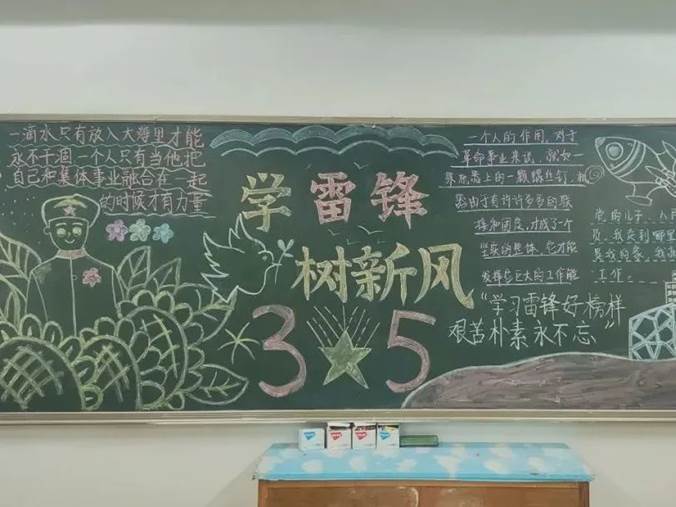 一滴水只有放入大海里才能
永不干涸一个人只有当他把
自己和集体事业融合在一起
的时候才有力量
学雷锋
树新风
3 5
一个人的作用,对于
革命事业来说,就如
一架机器上的一颗螺丝钉,机
器由于有许许多多的螺
接和固定,才成了个
坚实的整体,它才能
发挥它巨大的工作能
党的儿子,人民
员,我来到哪里
是我的家,我
工作。
“学习雷锋好榜样
艰苦朴素永不忘”